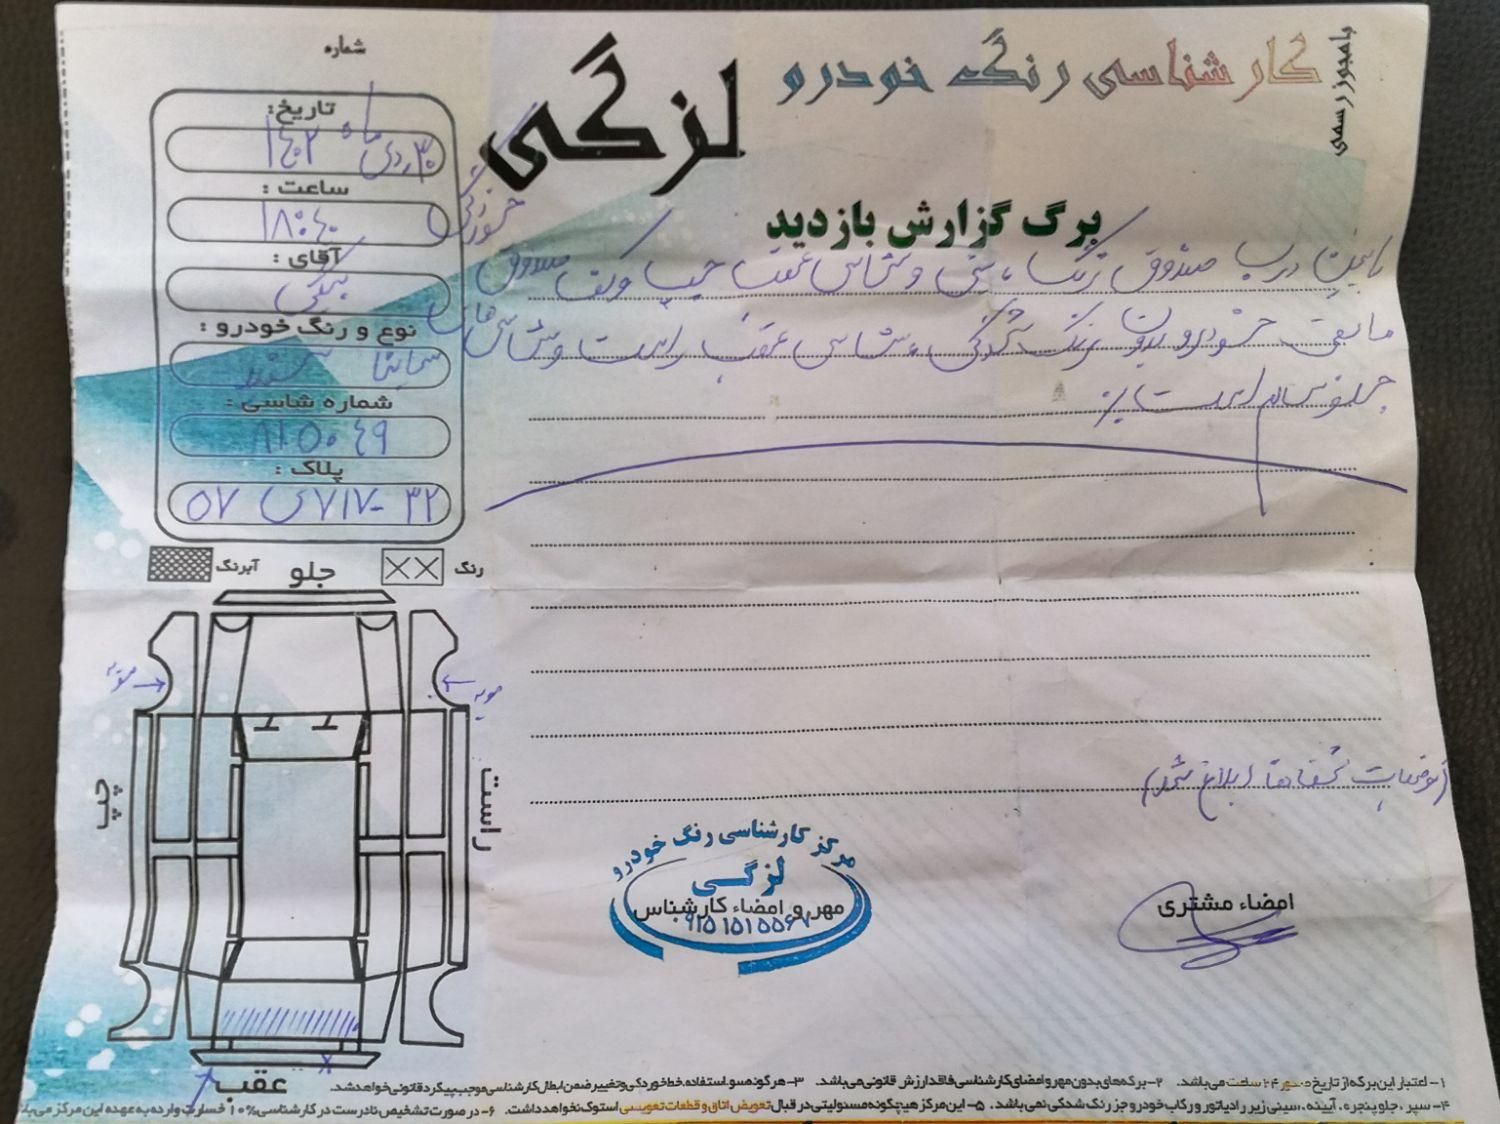 با مجوز رسمی
کارشناسی رنگ خودرو
لزگی
برگ گزارش بازدید
شماره
تاریخ:
۳۰ دی ماه ۱۴۰۲
ساعت :
۱۸:۴۰
آقای :
نوع و رنگ خودرو :
ساینا سفید
شماره شاسی :
۸۱۵۰۴۹
پلاک :
۳۲ - ۷۱۷ ی ۵۷
پایین درب صندوق رنگ ، سینی و شاسی عقب چپ و کف صندوق
مابقی خودرو بدون رنگ شدگی ، شاسی عقب راست و شاسی های
جلو سالم است
(توضیحات شفاها ابلاغ شد)
رنگ
آبرنگ
جلو
چپ
راست
عقب
مرکز کارشناسی رنگ خودرو
لزگی
مهر و امضاء کارشناس
امضاء مشتری
۱- اعتبار این برگه از تاریخ صدور ۲۴ ساعت می باشد. ۲- برگه های بدون مهر و امضای کارشناسی فاقد ارزش قانونی می باشد. ۳- هرگونه سو استفاده خط خوردگی و تغییر ضمن ابطال کارشناسی موجب پیگرد قانونی خواهد شد.
۴- سپر، جلو پنجره، آیینه، سینی زیر رادیاتور و رکاب خودرو جز رنگ شدگی نمی باشد. ۵- این مرکز هیچگونه مسئولیتی در قبال تعویض اتاق و قطعات تعویضی استوک نخواهد داشت. ۶- در صورت تشخیص نادرست در کارشناسی ۱۰% خسارت وارده به عهده این مرکز می با